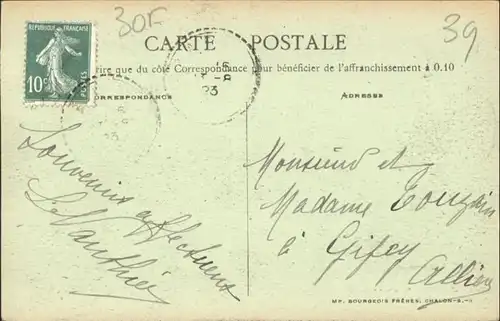 30F
39
RÉPUBLIQUE FRANÇAISE
10c
POSTES
CARTE POSTALE
que du côté Correspondance pour bénéficier de l'affranchissement à 0.10
CORRESPONDANCE
ADRESSE
Souvenirs affectueux
Monsieur et
Madame
à
Allier
IMP. BOURGEOIS FRÈRES, CHALON-S.-S